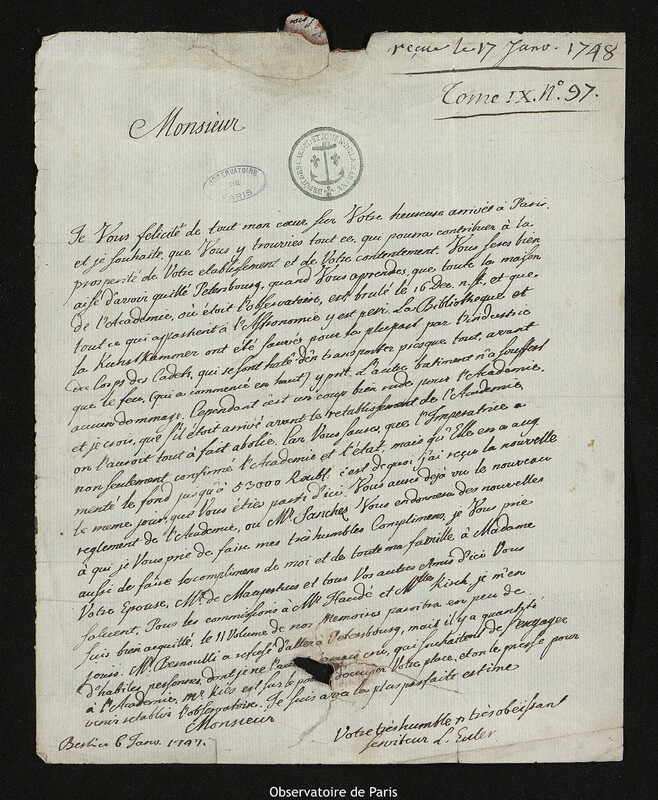 reçue le 17 Janv. 1748
Tome IX. N° 97.
Monsieur
DEPOT DES CARTES ET JOURNAUX DE LA MARINE
OBSERVATOIRE
DE
PARIS
Je Vous felicite de tout mon cœur sur Votre heureuse arrivée à Paris.
et je souhaite, que Vous y trouvies tout ce, qui pourra contribuer à la
prosperité de Votre etablissement et de Votre contentement. Vous seres bien
aise d'avoir quitté Petersbourg, quand Vous aprendes, que toute la maison
de l'Academie, où étoit l'observatoire, est brulé le 16 Dec. n. st. et que
tout ce qui apartenoit à l'Astronomie y est peri. La Bibliotheque et
la Kunstkammer ont été sauvés pour la pluspart par l'industrie
du Corps des Cadets, qui se sont haté d'en transporter presque tout, avant
que le feu, (qui a commencé en haut) y prit. L'autre batiment n'a souffert
aucun dommage. Cependant c'est un coup bien rude pour l'Academie,
et je crois, que s'il étoit arrivé avant le retablissement de l'Academie,
on l'auroit tout à fait abolie. Car Vous saures, que l'Imperatrice a
non seulement confirmé l'Academie et l'état, mais qu'Elle en a aug
menté le fond jusqu'à 53000 Roubl. c'est de quoi j'ai reçu la nouvelle
le meme jour, que Vous éties parti d'ici. Vous aures dejà vu le nouveau
reglement de l'Academie, ou Mr. Sanches Vous en donnera des nouvelles
à qui je Vous prie de faire mes très humbles Complimens, je Vous prie
aussi de faire les complimens de moi et de toute ma famille à Madame
Votre Epouse, Mr. de Maupertuis et tous Vos autres Amis d'ici Vous
saluent. Pour les commissions à Mr. Haudé et Mlles Kirch, je m'en
suis bien acquitté, le II Volume de nos Memoires paroitra en peu de
jours. Mr. Bernoulli a refusé d'aller à Petersbourg, mais il y a quantité
d'habiles personnes, dont je ne l'aurois jamais cru, qui souhaitent de s'engager
à l'Academie, Mr Kies est sur le point d'occuper Votre place, et on le presse pour
venir retablir l'observatoire. Je suis avec la plus parfaite estime
Monsieur
Berlin 6 Janv. 1747.
Votre très humble et très obeissant
serviteur L. Euler
Observatoire de Paris